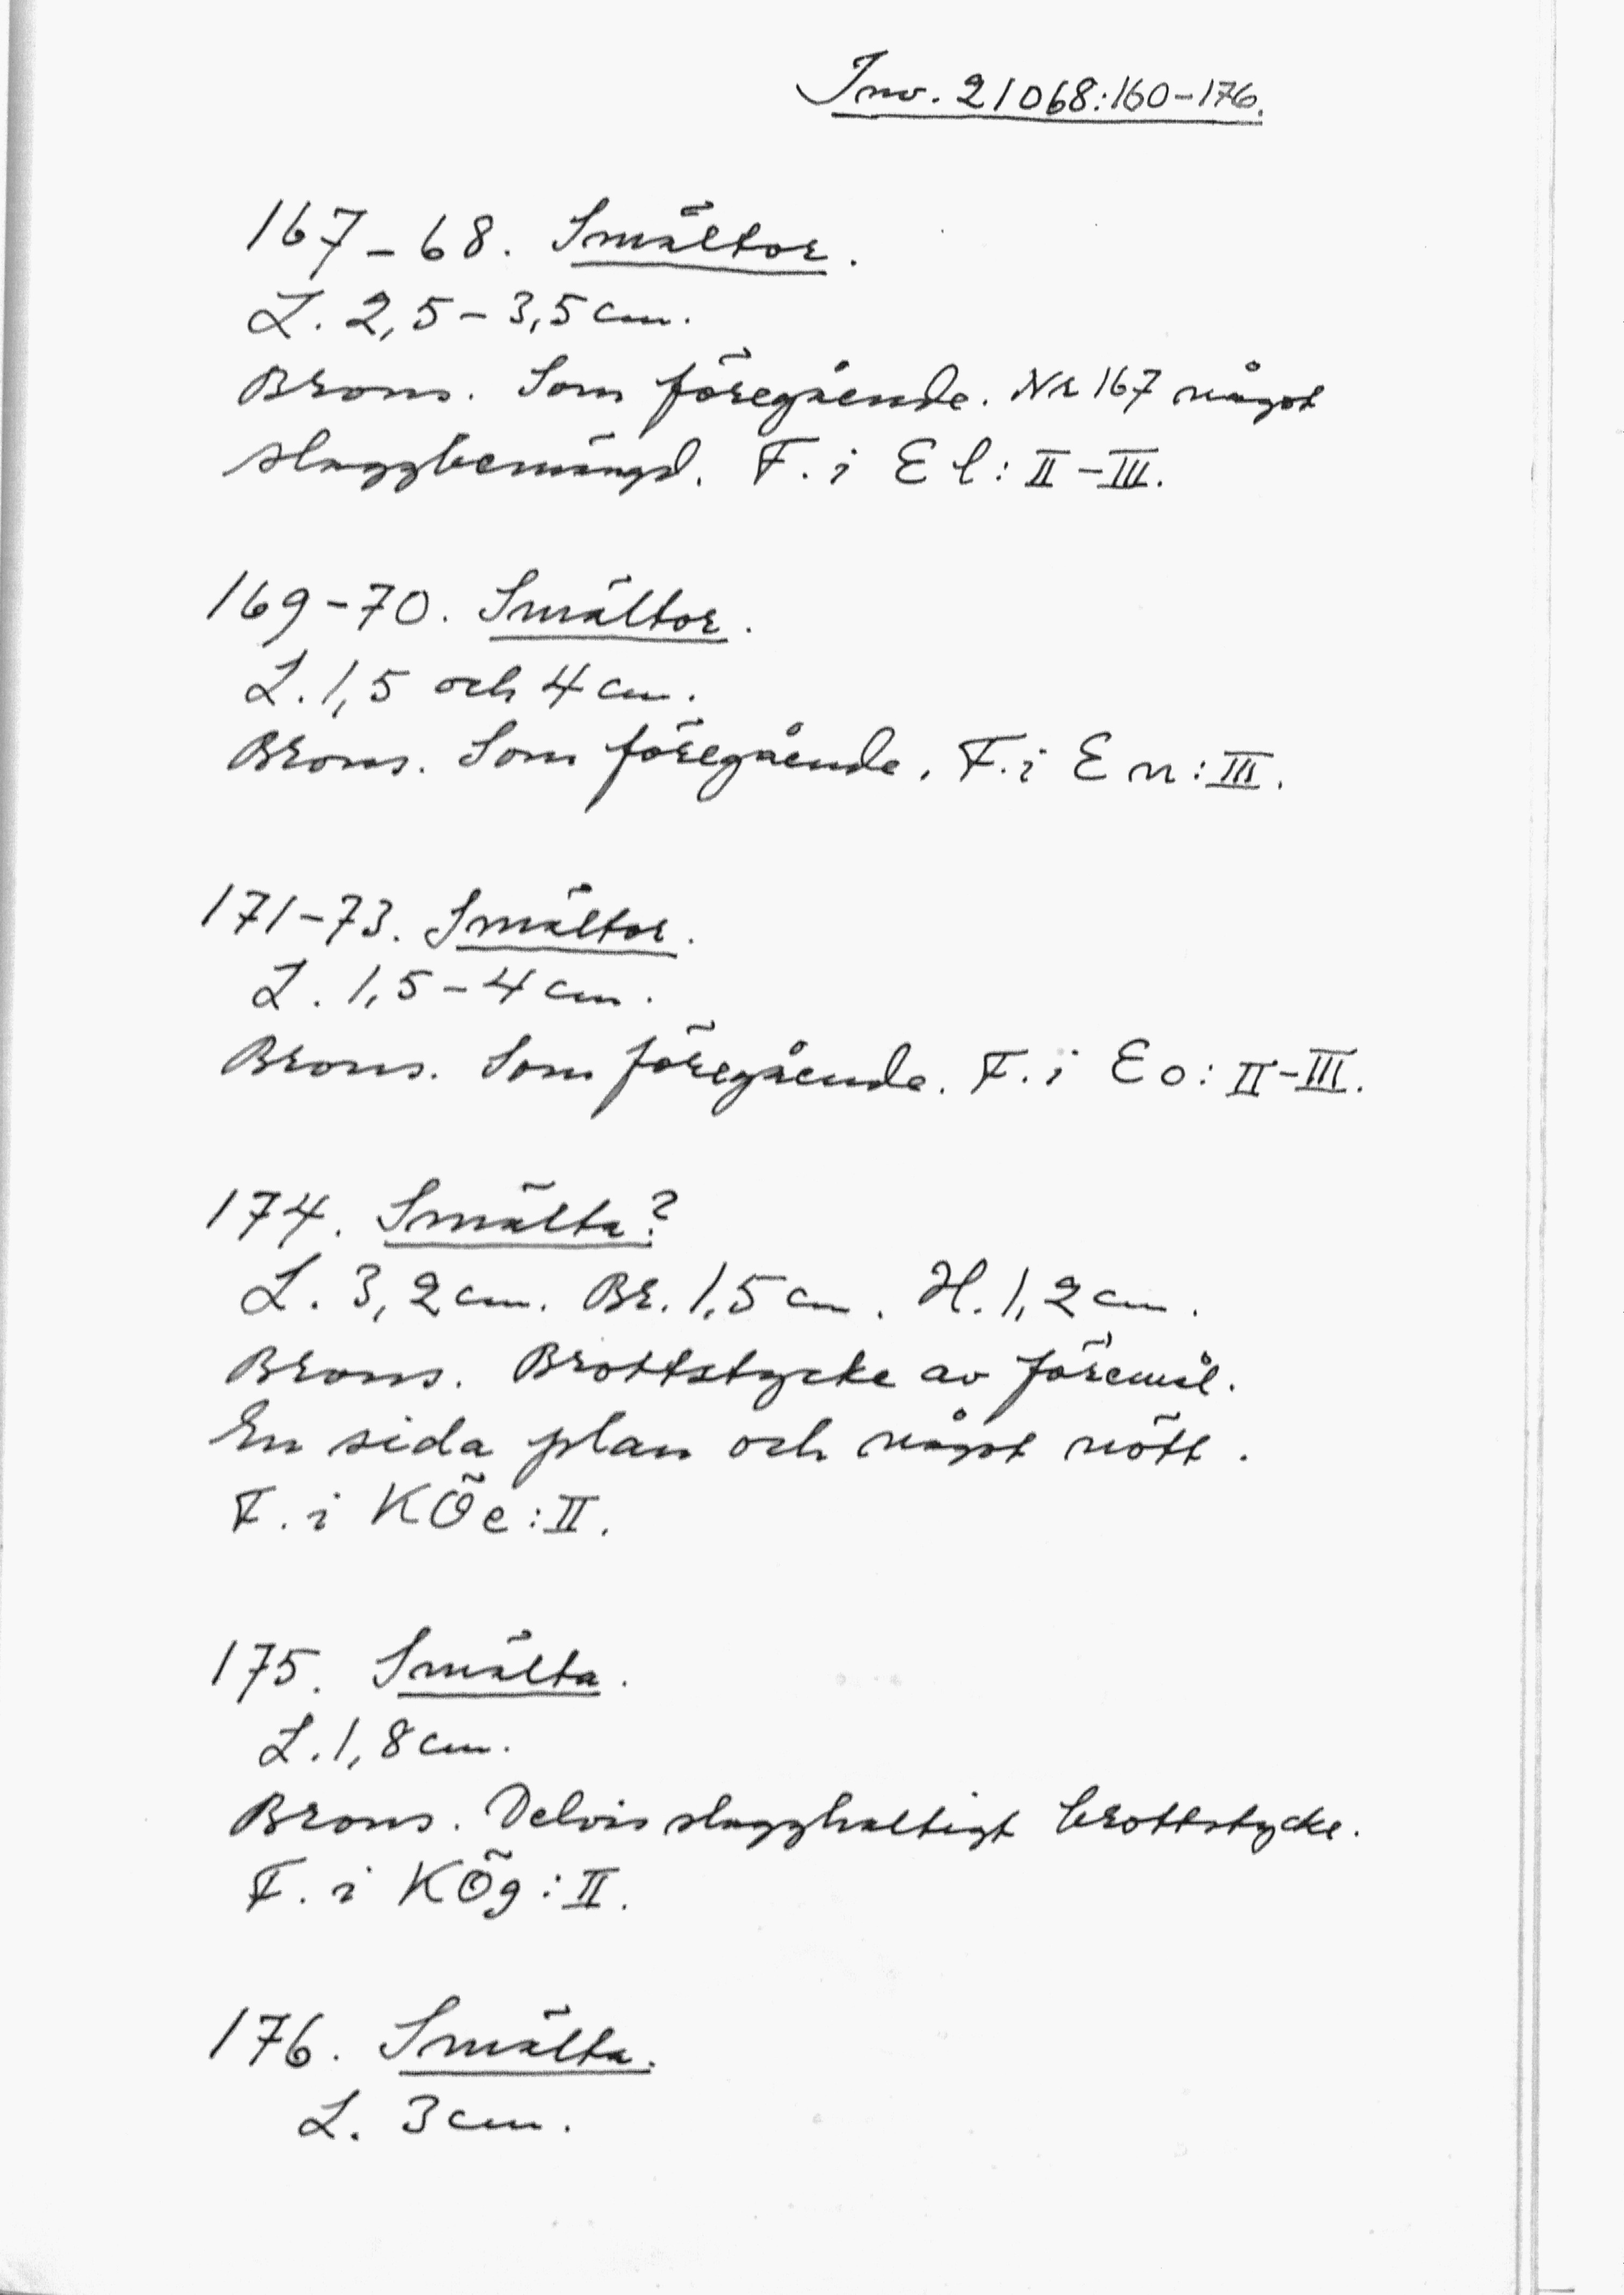 Inv. 21068:160-176.
167-68. Smältor.
L. 2,5-3,5 cm.
Brons. Som föregående. Nr 167 något
slaggbemängd. F. i El:II-III.
169-70. Smältor.
L. 1,5 och 4 cm.
Brons. Som föregående. F. i En:III.
171-73. Smältor.
L. 1,5-4 cm.
Brons. Som föregående. F. i Eo:II-III.
174. Smälta?
L. 3,2 cm. Br. 1,5 cm. H. 1,2 cm.
Brons. Brottstycke av föremål.
En sida plan och något nött.
F. i KÖe:II.
175. Smälta.
L. 1,8 cm.
Brons. Delvis slagghaltigt brottstycke.
F. i KÖg:II.
176. Smälta.
L. 3 cm.